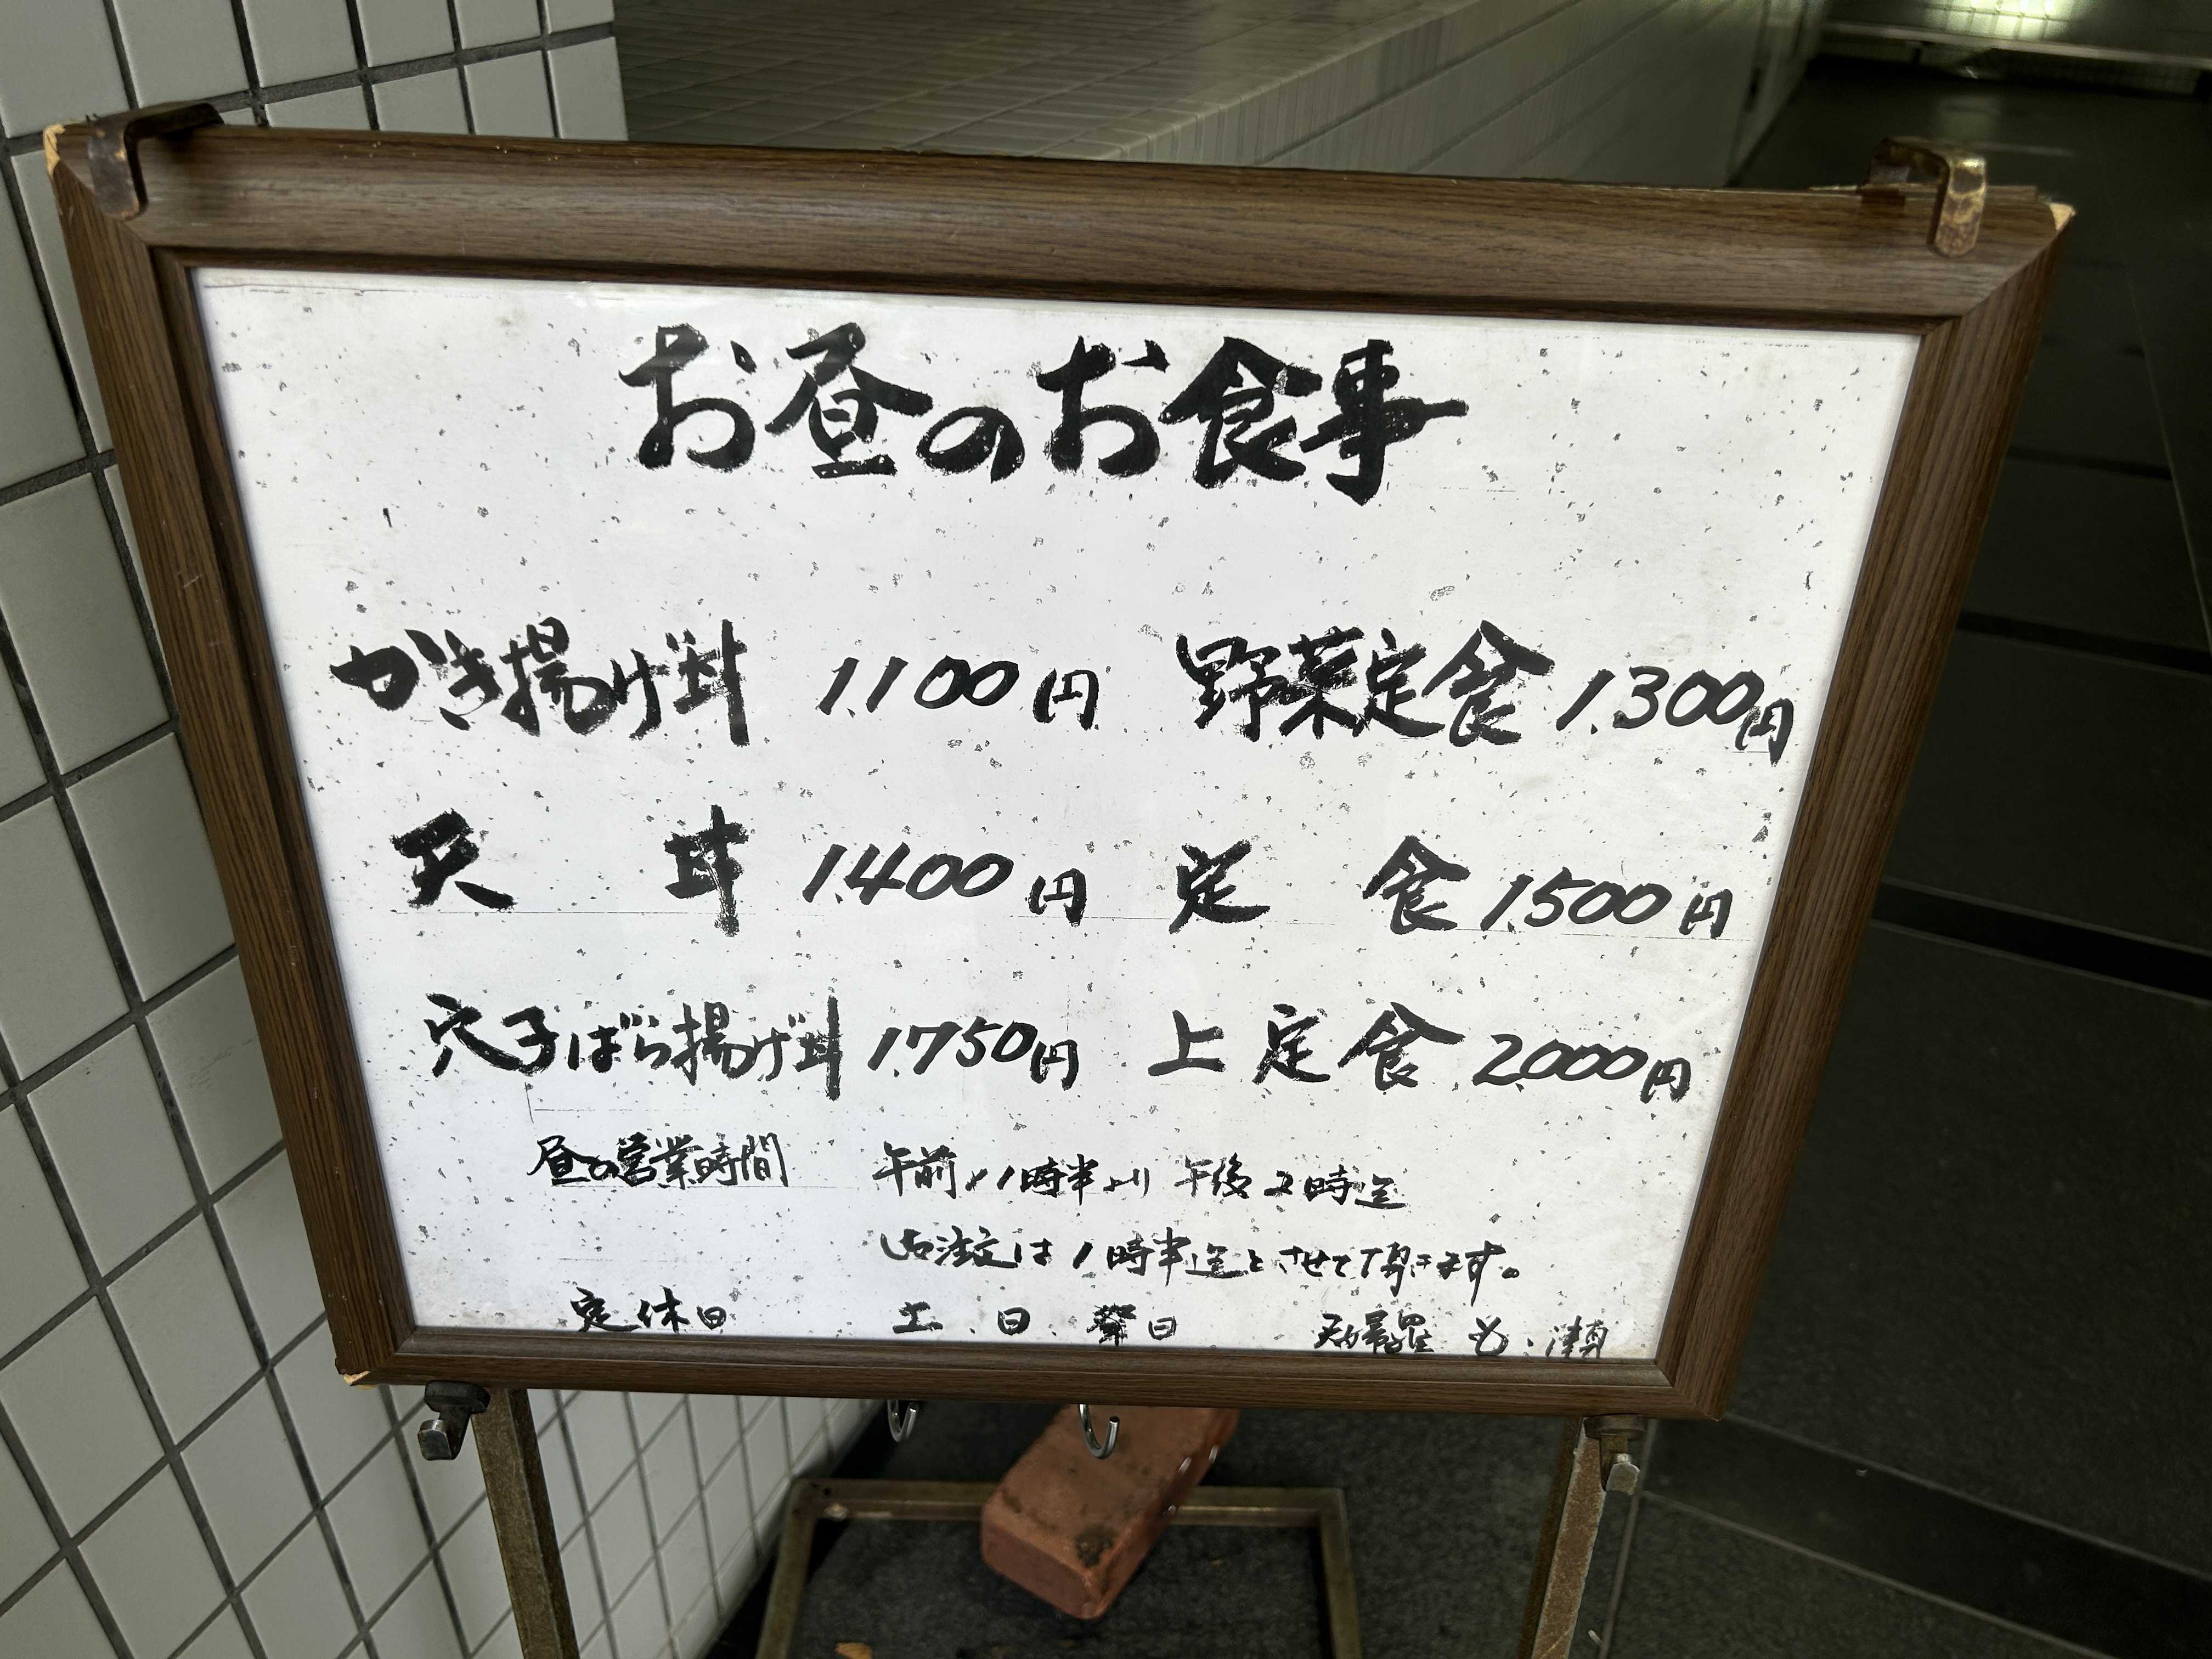 お昼のお食事
かき揚げ丼 1,100円 野菜定食 1,300円
天丼 1,400円 定食 1,500円
穴子ばら揚げ丼 1,750円 上定食 2,000円
昼の営業時間 午前11時半より 午後2時迄
御注文は1時半迄とさせて頂きます。
定休日 土.日.祭日 天婦羅